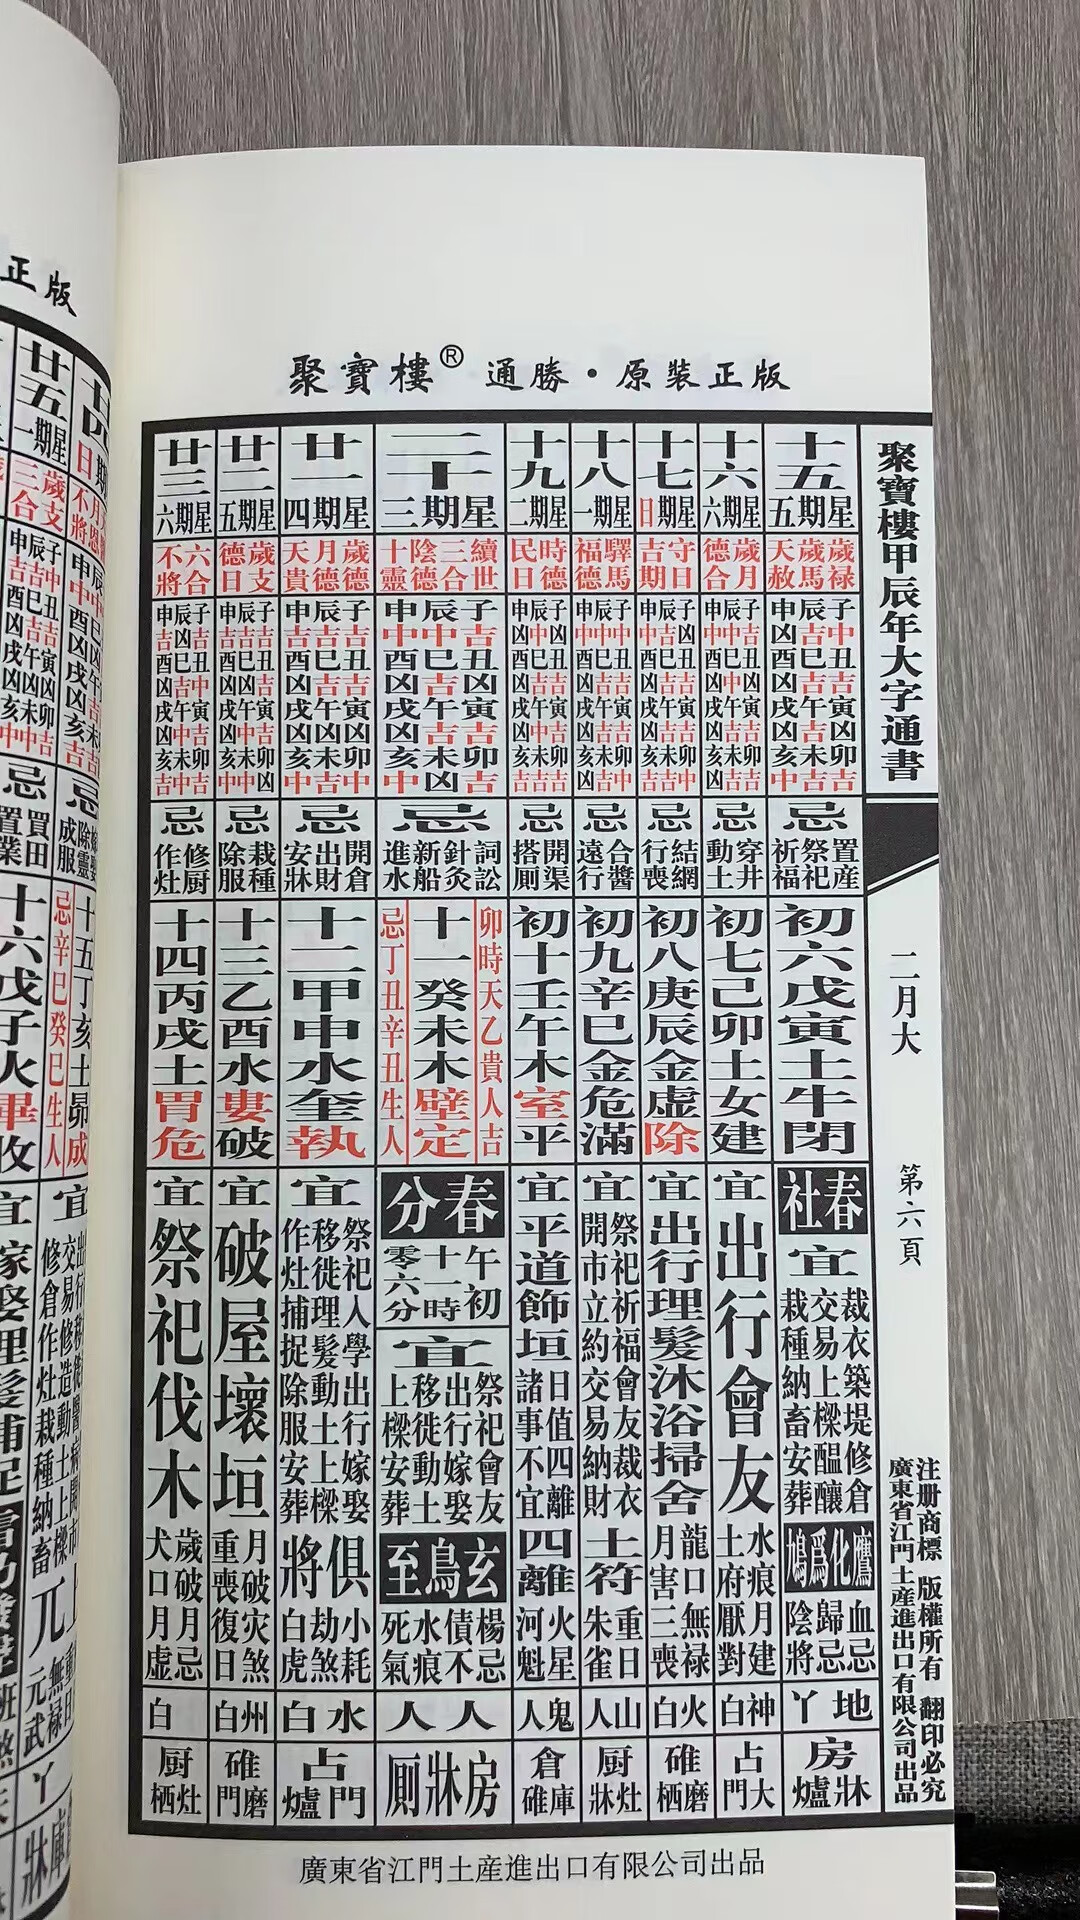 聚寳樓® 通勝·原裝正版
聚寳樓甲辰年大字通書
二月大
第六頁
注册商標 版權所有 翻印必究
廣東省江門土産進出口有限公司出品
十五
星期五
歲禄
歲馬
天赦
子中丑吉寅凶卯吉
辰吉巳吉午吉未吉
申凶酉凶戌凶亥中
忌
置産
祭祀
祈福
初六戊寅土牛閉
春社
宜
裁衣築堤修倉
交易上樑醖釀
栽種納畜安葬
鷹化爲鳩
血忌
歸忌
陰將
地丫
房牀
爐
十六
星期六
歲月
德合
子吉丑凶寅吉卯吉
辰中巳中午吉未吉
申中酉凶戌凶亥凶
忌
穿井
動土
初七己卯土女建
宜
出行會友
水痕月建
土府厭對
神白
占大
門
十七
星期日
守日
吉期
子凶丑吉寅吉卯中
辰吉巳吉午凶未中
申中酉凶戌凶亥吉
忌
結網
行喪
初八庚辰金虚除
宜
出行理髮沐浴掃舍
龍口無禄
月害三喪
火白
碓磨
栖
十八
星期一
驛馬
福德
子中丑吉寅吉卯中
辰中巳吉午凶未吉
申中酉凶戌凶亥吉
忌
合醬
遠行
初九辛巳金危滿
宜
祭祀祈福會友裁衣
開市立約交易納財
土符
重日
朱雀
山人
厨灶
牀
十九
星期二
時德
民日
子凶丑吉寅吉卯吉
辰中巳吉午凶未吉
申凶酉凶戌凶亥中
忌
開渠
搭厠
初十壬午木室平
宜
平道飾垣
日值四離
諸事不宜
四離
火星
河魁
鬼人
倉庫
碓
二十
星期三
續世
三合
陰德
十靈
子吉丑凶寅吉卯吉
辰中巳吉午吉未凶
申中酉凶戌凶亥中
忌
詞訟
針灸
新船
進水
卯時天乙貴人吉
十一癸未木壁定
忌丁丑辛丑生人
春分
午初
十一時
零六分
宜
祭祀會友
出行嫁娶
移徙動土
上樑安葬
玄鳥至
楊忌
債不
水痕
死氣
人人
房牀厠
廿一
星期四
歲德
月德
天貴
子吉丑吉寅凶卯中
辰吉巳吉午凶未吉
申吉酉凶戌凶亥中
忌
開倉
出財
安牀
十二甲申水奎執
宜
祭祀入學出行嫁娶
移徙理髮動土上樑
作灶捕捉除服安葬
俱將
小耗
劫煞
白虎
水白
占門
爐
廿二
星期五
歲支
德日
子吉丑吉寅中卯凶
辰吉巳凶午中未中
申吉酉凶戌凶亥中
忌
栽種
除服
十三乙酉水婁破
宜
破屋壞垣
月破灾煞
重喪復日
州白
碓磨
門
廿三
星期六
六合
不將
子吉丑中寅吉卯中
辰凶巳吉午吉未中
申吉酉凶戌凶亥吉
忌
修厨
作灶
十四丙戌土胃危
宜
祭祀伐木
歲破月忌
犬口月虚
白
厨灶
栖
廣東省江門土産進出口有限公司出品
正版
廿五
星期一
歲支
三合
忌
買田
置業
十五丁亥土昴成
忌辛巳癸巳生人
十六戊子火畢收
宜
嫁娶理髮捕捉